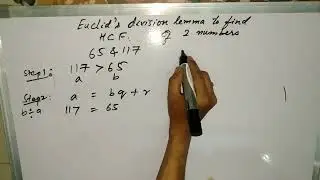 Euclid's division lemma to find
HCF. of 2 numbers
65 & 117
Step1: 117 > 65
a b
Step2: a = bq + r
b÷a 117 = 65